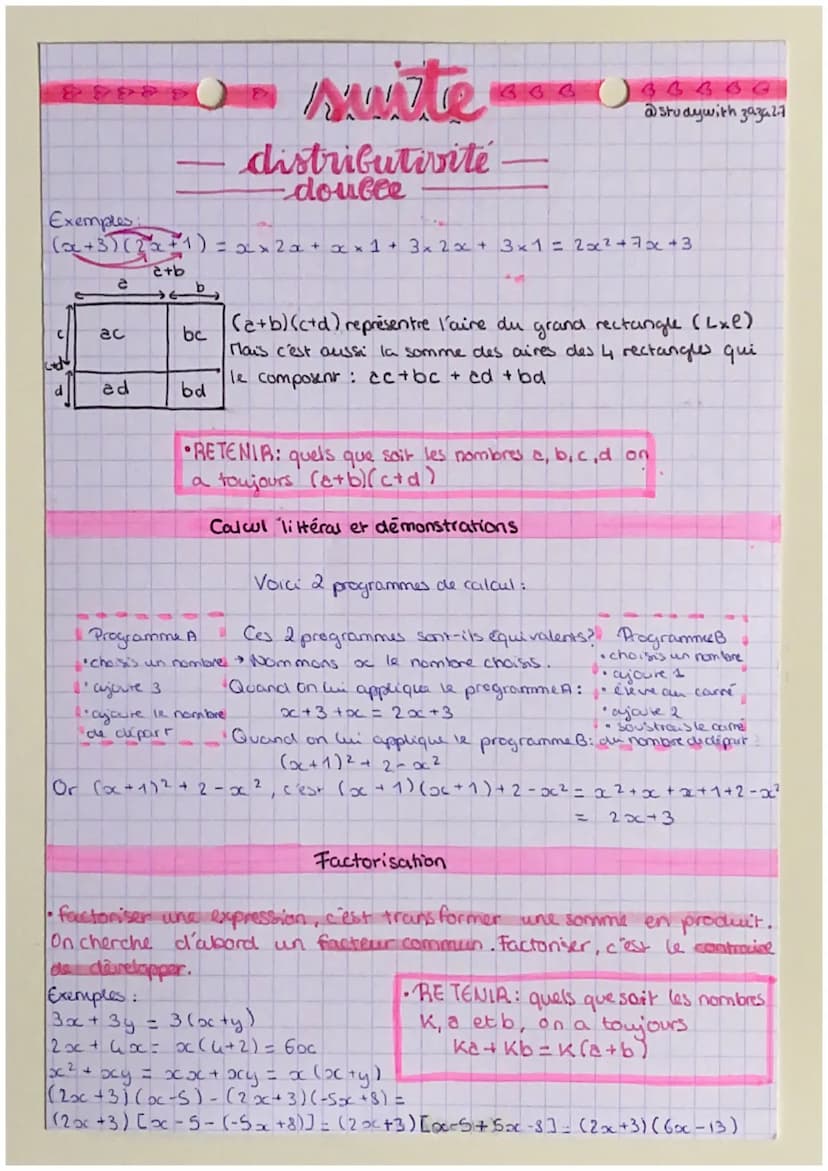 suite
@studywith zaza27
distributivité
double
Exemples:
(x+3)(2x+1) = x×2x + x×1 + 3×2x + 3×1 = 2x²+7x+3
a+b
a b
c ac bc
c+d
d ad bd
(a+b)(c+d) représentre l'aire du grand rectangle (L×l)
Mais c'est aussi la somme des aires des 4 rectangles qui
le composent : ac+bc + ad +bd
•RETENIR: quels que soit les nombres a, b, c, d on
a toujours (a+b)(c+d)
Calcul littéral et démonstrations
Voici 2 programmes de calcul :
Programme A
•choisis un nombre
•ajoute 3
•ajoute le nombre
de départ
Ces 2 programmes sont-ils équivalents?
→ Nommons x le nombre choisis.
Quand on lui applique le programme A :
x+3+x = 2x+3
Quand on lui applique le programme B:
(x+1)²+2-x²
Programme B
•choisis un nombre
•ajoute 1
•élève au carré
•ajoute 2
•soustrais le carré
du nombre de départ
Or (x+1)²+2-x², c'est (x+1)(x+1)+2-x² = x²+x+x+1+2-x²
= 2x+3
Factorisation
•factoriser une expression, c'est transformer une somme en produit.
On cherche d'abord un facteur commun. Factoriser, c'est le contraire
de développer.
Exemples :
3x+3y = 3(x+y)
2x+4x= x(4+2) = 6x
x²+xy = xx+xy = x(x+y)
(2x+3)(x-5)-(2x+3)(-5x+8) =
(2x+3)[x-5-(-5x+8)] = (2x+3)[x-5+5x-8] = (2x+3)(6x-13)
•RETENIR: quels que soit les nombres
K, a et b, on a toujours
Ka+Kb=K(a+b)